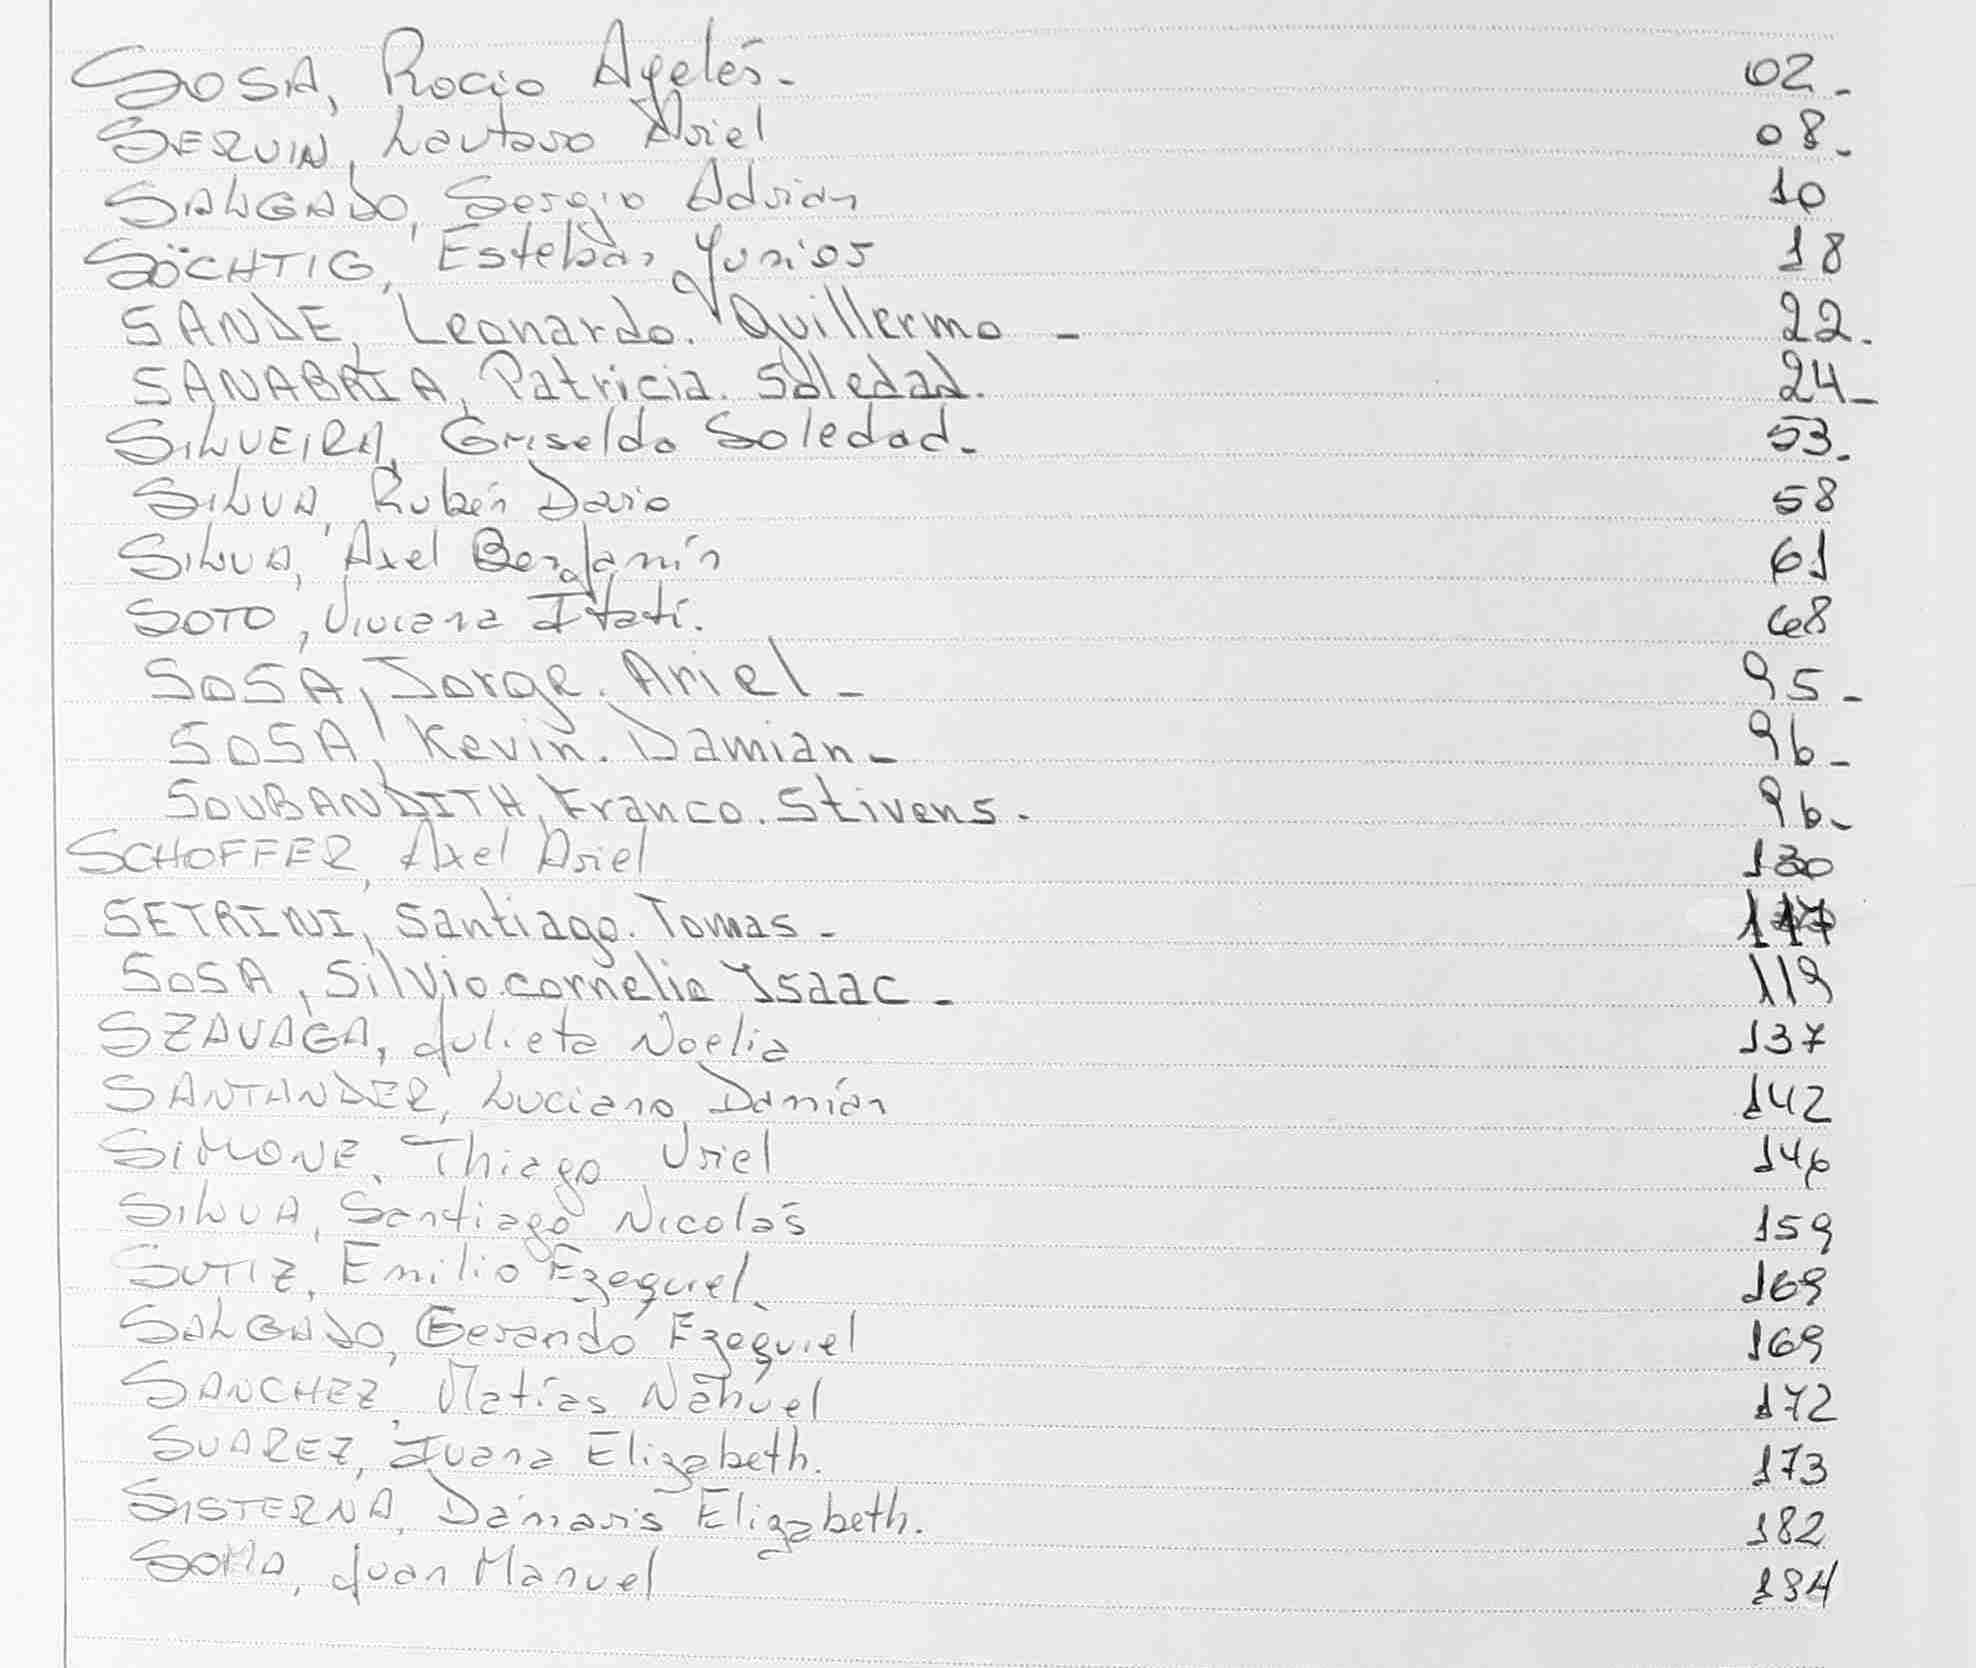 SOSA, Rocio Ayelés. 02.
SERVIN, Lautaro Ariel 08.
SALGADO, Sergio Adrian 10
SÖCHTIG, Esteban Junior 18
SANDE, Leonardo. Guillermo - 22.
SANABRIA, Patricia. Soledad. 24-
SILVEIRA, Griselda Soledad. 53.
SILVA, Rubén Dario 58
SILVA, Axel Benjamín 61
SOTO, Viviana Itatí. 68
SOSA, Jorge. Ariel - 95-
SOSA, Kevin. Damian - 96-
SOUBANDITH, Franco. Stivens. 96-
SCHOFFER, Axel Ariel 130
SETRINI, Santiago. Tomas - 117
SOSA, Silvio.cornelio Isaac - 119
SZAVAGA, Julieta Noelia 137
SANTANDER, Luciano Damián 142
SIMONE, Thiago Uriel 146
SILVA, Santiago Nicolás 159
SUTIZ, Emilio Ezequiel. 169
SALGADO, Gerardo Ezequiel 169
SANCHEZ, Matías Nahuel 172
SUAREZ, Juana Elizabeth. 173
SISTERNA, Dámaris Elizabeth. 182
SOMA, Juan Manuel 184